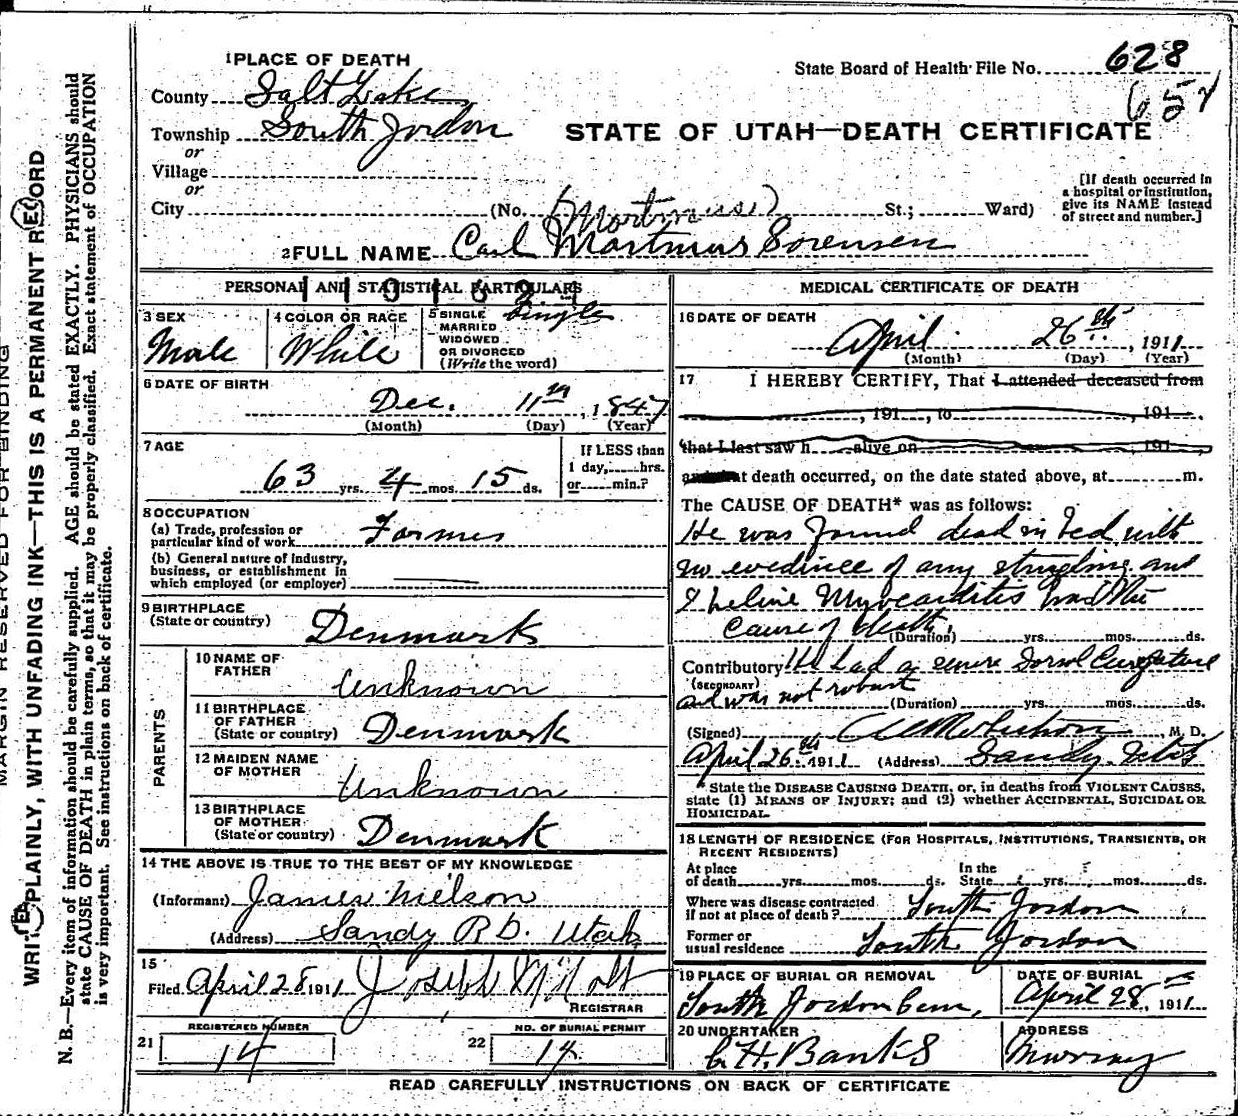 1 PLACE OF DEATH
State Board of Health File No. 628
County Salt Lake
Township South Jordon
STATE OF UTAH—DEATH CERTIFICATE
or
Village
or
City (No. (Martinus) St.; Ward)
[If death occurred in a hospital or institution, give its NAME instead of street and number.]
2 FULL NAME Carl Martinus Sorensen
PERSONAL AND STATISTICAL PARTICULARS
3 SEX Male
4 COLOR OR RACE White
5 SINGLE MARRIED WIDOWED OR DIVORCED (Write the word) Single
6 DATE OF BIRTH
Dec. 11th, 1847
(Month) (Day) (Year)
7 AGE
63 yrs. 4 mos. 15 ds.
If LESS than 1 day, hrs. or min.?
8 OCCUPATION
(a) Trade, profession or particular kind of work Farmer
(b) General nature of industry, business, or establishment in which employed (or employer)
9 BIRTHPLACE
(State or country) Denmark
PARENTS
10 NAME OF FATHER Unknown
11 BIRTHPLACE OF FATHER (State or country) Denmark
12 MAIDEN NAME OF MOTHER Unknown
13 BIRTHPLACE OF MOTHER (State or country) Denmark
14 THE ABOVE IS TRUE TO THE BEST OF MY KNOWLEDGE
(Informant) James Nielson
(Address) Sandy R.D. Utah
15
Filed April 28 1911 Joseph M Holt
REGISTRAR
21 REGISTERED NUMBER 14
22 NO. OF BURIAL PERMIT 14
MEDICAL CERTIFICATE OF DEATH
16 DATE OF DEATH
April 26th, 1911
(Month) (Day) (Year)
17 I HEREBY CERTIFY, That I attended deceased from
, 191 , to , 191 .
that I last saw h alive on , 191 ,
at death occurred, on the date stated above, at m.
The CAUSE OF DEATH* was as follows:
He was found dead in bed with
no evedince of any strugling and
I beline Myocarditis was the
cause of death.
(Duration) yrs. mos. ds.
Contributory He had a severe Dorsal Curvature
(SECONDARY)
and was not robust
(Duration) yrs. mos. ds.
(Signed) , M. D.
April 26th 1911 (Address) Sandy Utah
*State the DISEASE CAUSING DEATH, or, in deaths from VIOLENT CAUSES, state (1) MEANS OF INJURY; and (2) whether ACCIDENTAL, SUICIDAL OR HOMICIDAL.
18 LENGTH OF RESIDENCE (FOR HOSPITALS, INSTITUTIONS, TRANSIENTS, OR RECENT RESIDENTS)
At place of death yrs. mos. ds. In the State yrs. mos. ds.
Where was disease contracted if not at place of death? South Jordon
Former or usual residence South Jordon
19 PLACE OF BURIAL OR REMOVAL
South Jordon Cem,
DATE OF BURIAL
April 28, 1911
20 UNDERTAKER
C H. Banks
ADDRESS
Murray
READ CAREFULLY INSTRUCTIONS ON BACK OF CERTIFICATE
MARGIN RESERVED FOR BINDING
WRITE PLAINLY, WITH UNFADING INK—THIS IS A PERMANENT RECORD
N. B.—Every item of information should be carefully supplied. AGE should be stated EXACTLY. PHYSICIANS should
state CAUSE OF DEATH in plain terms, so that it may be properly classified. Exact statement of OCCUPATION
is very important. See instructions on back of certificate.